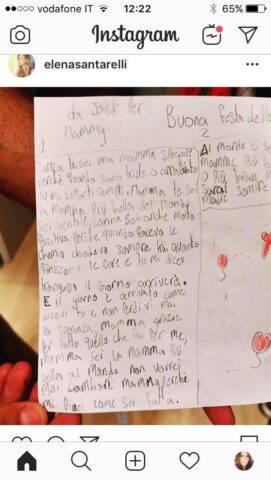 vodafone IT
12:22
65%
Instagram
elenasantarelli
da Jack per
Mammy
Buona festa della
1
2
mamma tu sei una mamma speciale
perchè quando sono triste o arrabbiato
tu mi conforti sempre. Mamma tu sei
la mamma più bella del mondo
sei gentile carina sei anche molto
positiva perche quando facevo le
chemio chiedevo sempre tra quanto
finiscono le cure e tu mi dicevi
tranquillo il giorno arriverà.
E il giorno è arrivato come
dicevi tu e non perdevi mai
la speranza, mamma grazie
per tutto quello che fai per me,
mamma sei la mamma più
bella del mondo non vorrei
mai cambiare mammy perchè
mi piaci come sei fatta.
Al mondo ci s
mamme più b
o più brave, m
sarai sempre
madre